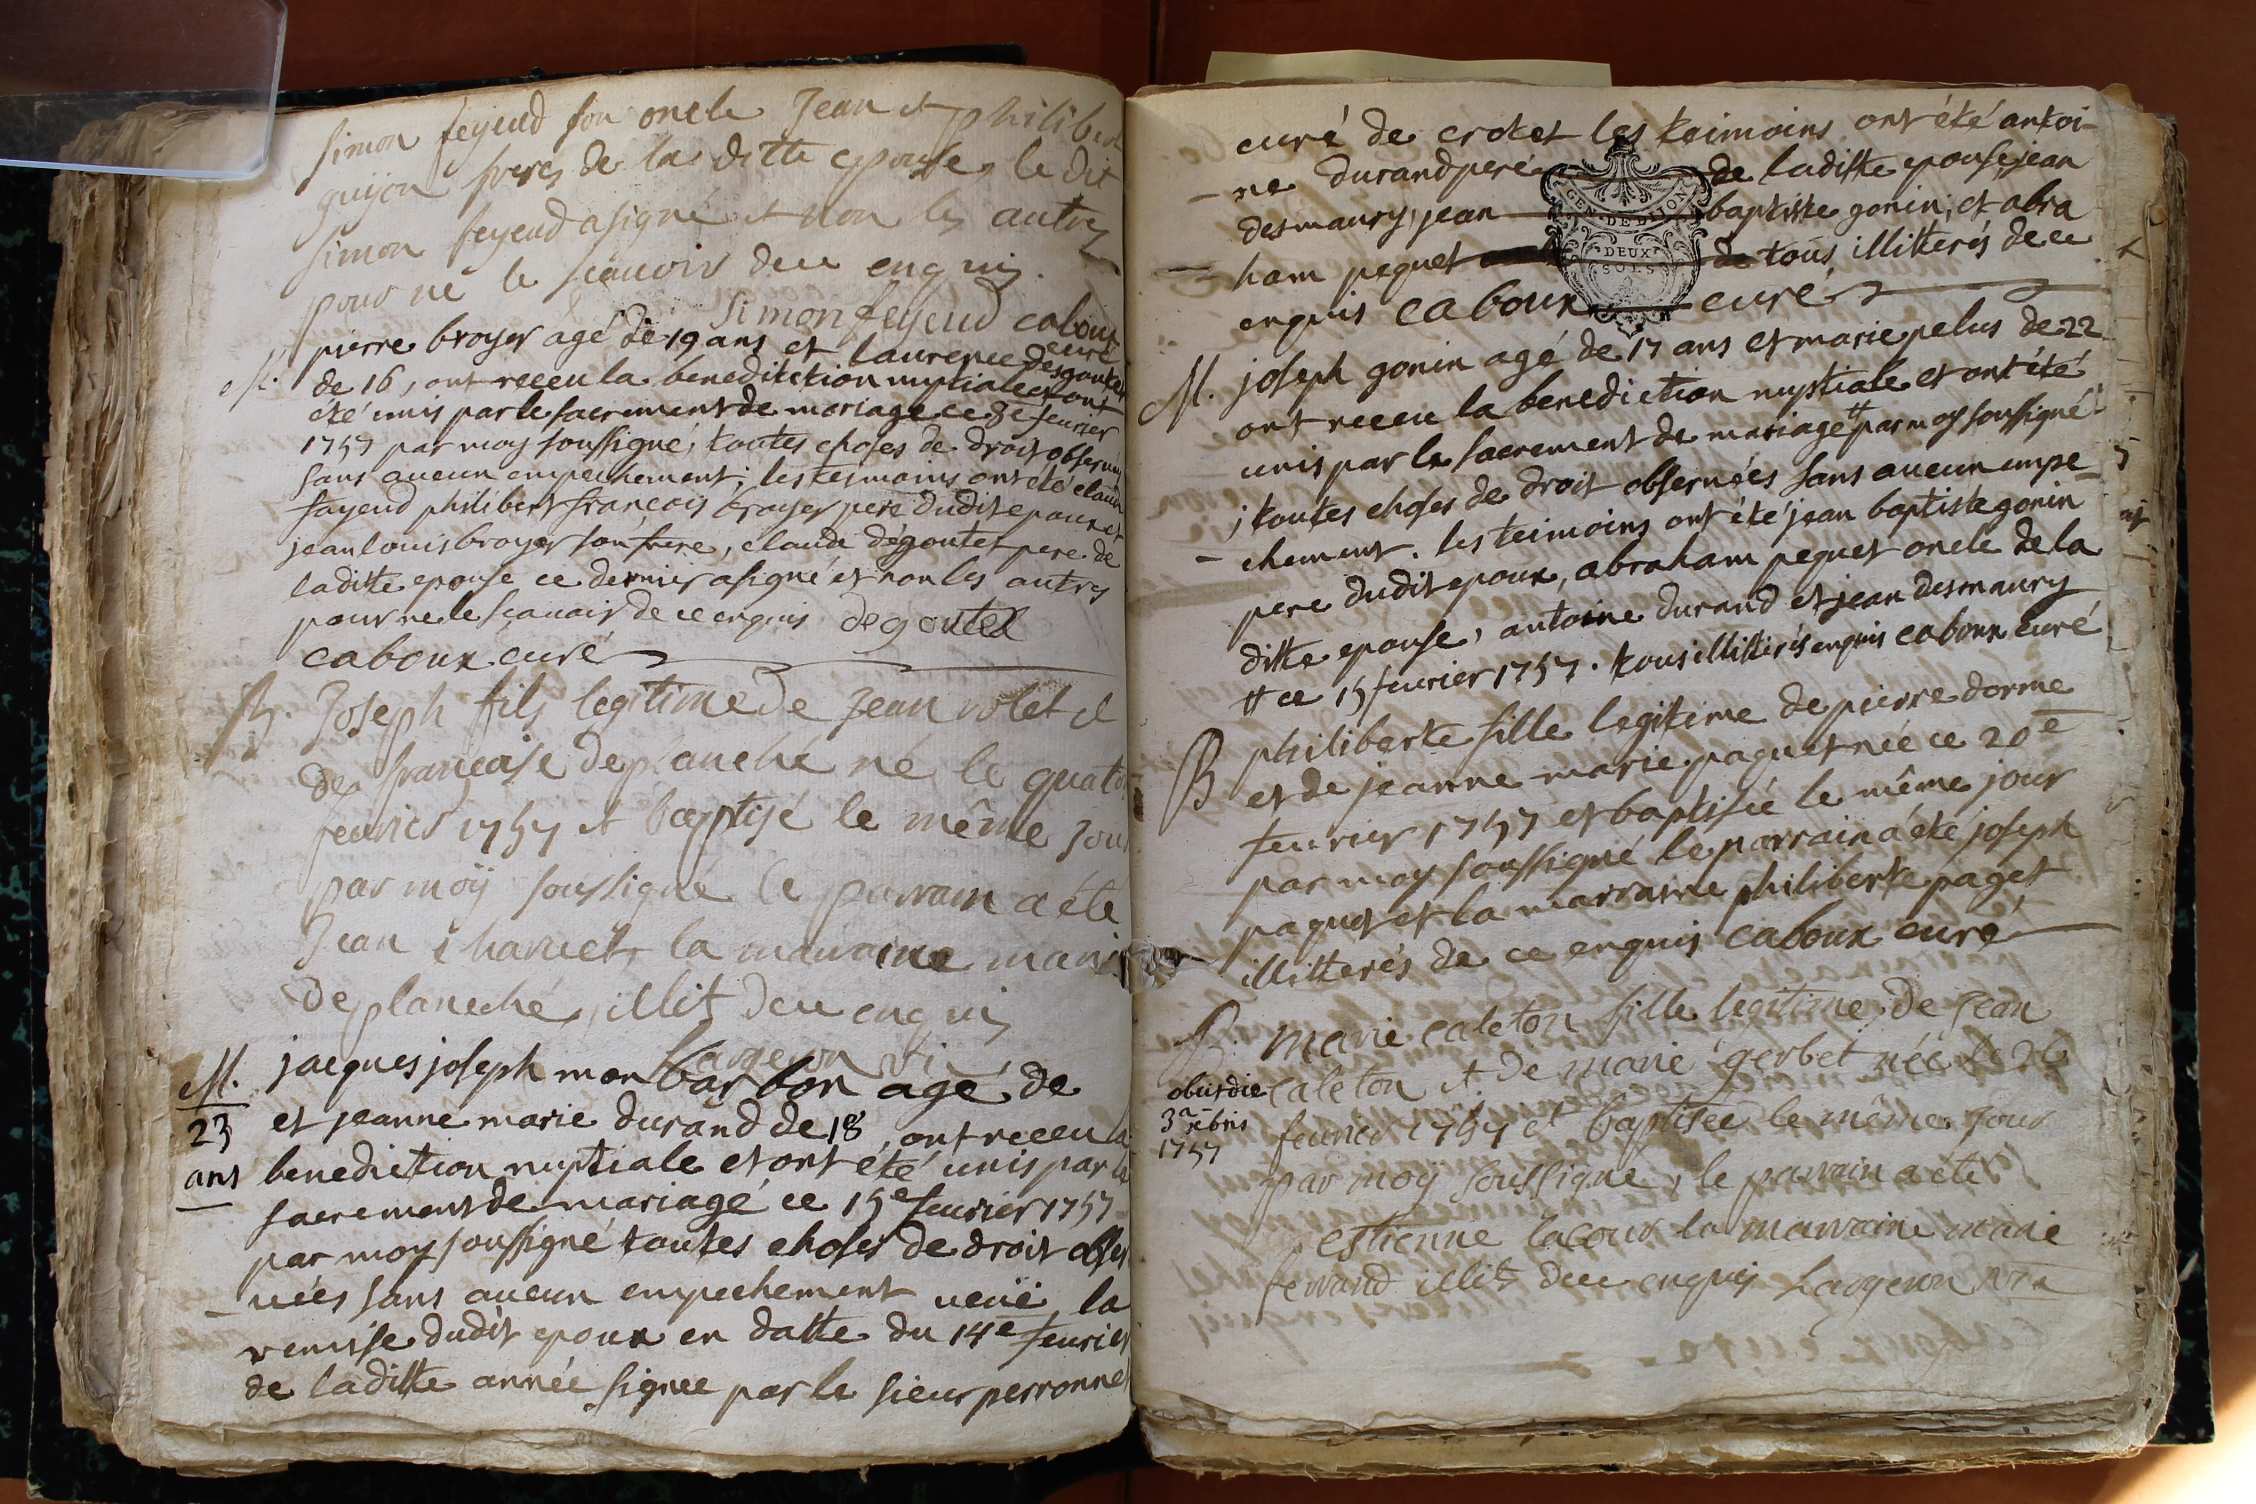 simon feyeud son oncle Jean et philibert
guijon freres de la ditte epouse, le dit
simon feyeud a signé et non les autres
pour ne le scavoir de ce enquis.
simon feyeud caboux
curé
M. pierre broyer agé de 19 ans et laurence desgoutes
de 16, ont receu la benediction nuptiale et ont
été unis par le sacrement de mariage ce 8e feurier
1757 par moy soussigné, toutes choses de droit obseruées
sans aucun empechement; les tesmoins ont été claude
fayeud philibert françois broyer pere dudit epoux et
jean louis broyer son frere, claude dégoutes pere de
laditte epouse ce dernier a signé et non les autres
pour ne le sçauoir de ce enquis degoutes
caboux curé
B. Joseph fils legitime de Jean volet et
de françoise deplanche né le quator
feurier 1757 et baptisé le même jour
par moÿ soussigné le parrain a été
Jean charuet, la marraine marie
deplanche, illit de ce enquis
Largeron vic
M. jacques joseph monbarbon agé de
23 et jeanne marie durand de 18, ont receu la
ans benediction nuptiale et ont été unis par le
sacrement de mariage ce 15e feurier 1757
par moy soussigné toutes choses de droit obser
-uées sans aucun empechement ueüe la
remisse dudit epoux en datte du 14e feurier
de laditte année signée par le sieur perronnet
curé de crotet les teimoins ont été antoi-
-ne durand pere de laditte epouse, jean
desmaury, jean baptiste gonin, et abra
-ham pequet tous illitterés de ce
enquis caboux curé
GEN. DE DIJON
DEUX
SOLS
M. joseph gonin agé de 17 ans et marie pelus de 22
ont receu la benediction nuptiale et ont été
unis par le sacrement de mariage # par moy soussigné
; toutes choses de droit obseruées sans aucun empe-
-chement. les teimoins ont été jean baptiste gonin
pere dudit epoux, abraham pequet oncle de la
ditte epouse, antoine durand et jean desmaury
# ce 15 feurier 1757. tous illitterés enquis caboux curé
B philiberte fille legitime de pierre dorme
et de jeanne marie paquet née ce 20e
feurier 1757 et baptisée le même jour
par moy soussigné le parrain a été joseph
paquet et la marraine philiberte paget
illitterés de ce enquis caboux curé
B. marie caleton fille legitime de Jean
caleton et de marie gerbet née le 26
obiit die
3a
1757
feurier 1757 et baptisée le même jour
par moÿ soussigné, le parrain a été
estienne lacour la marraine marie
ferrand illit de ce enquis Largeron vic